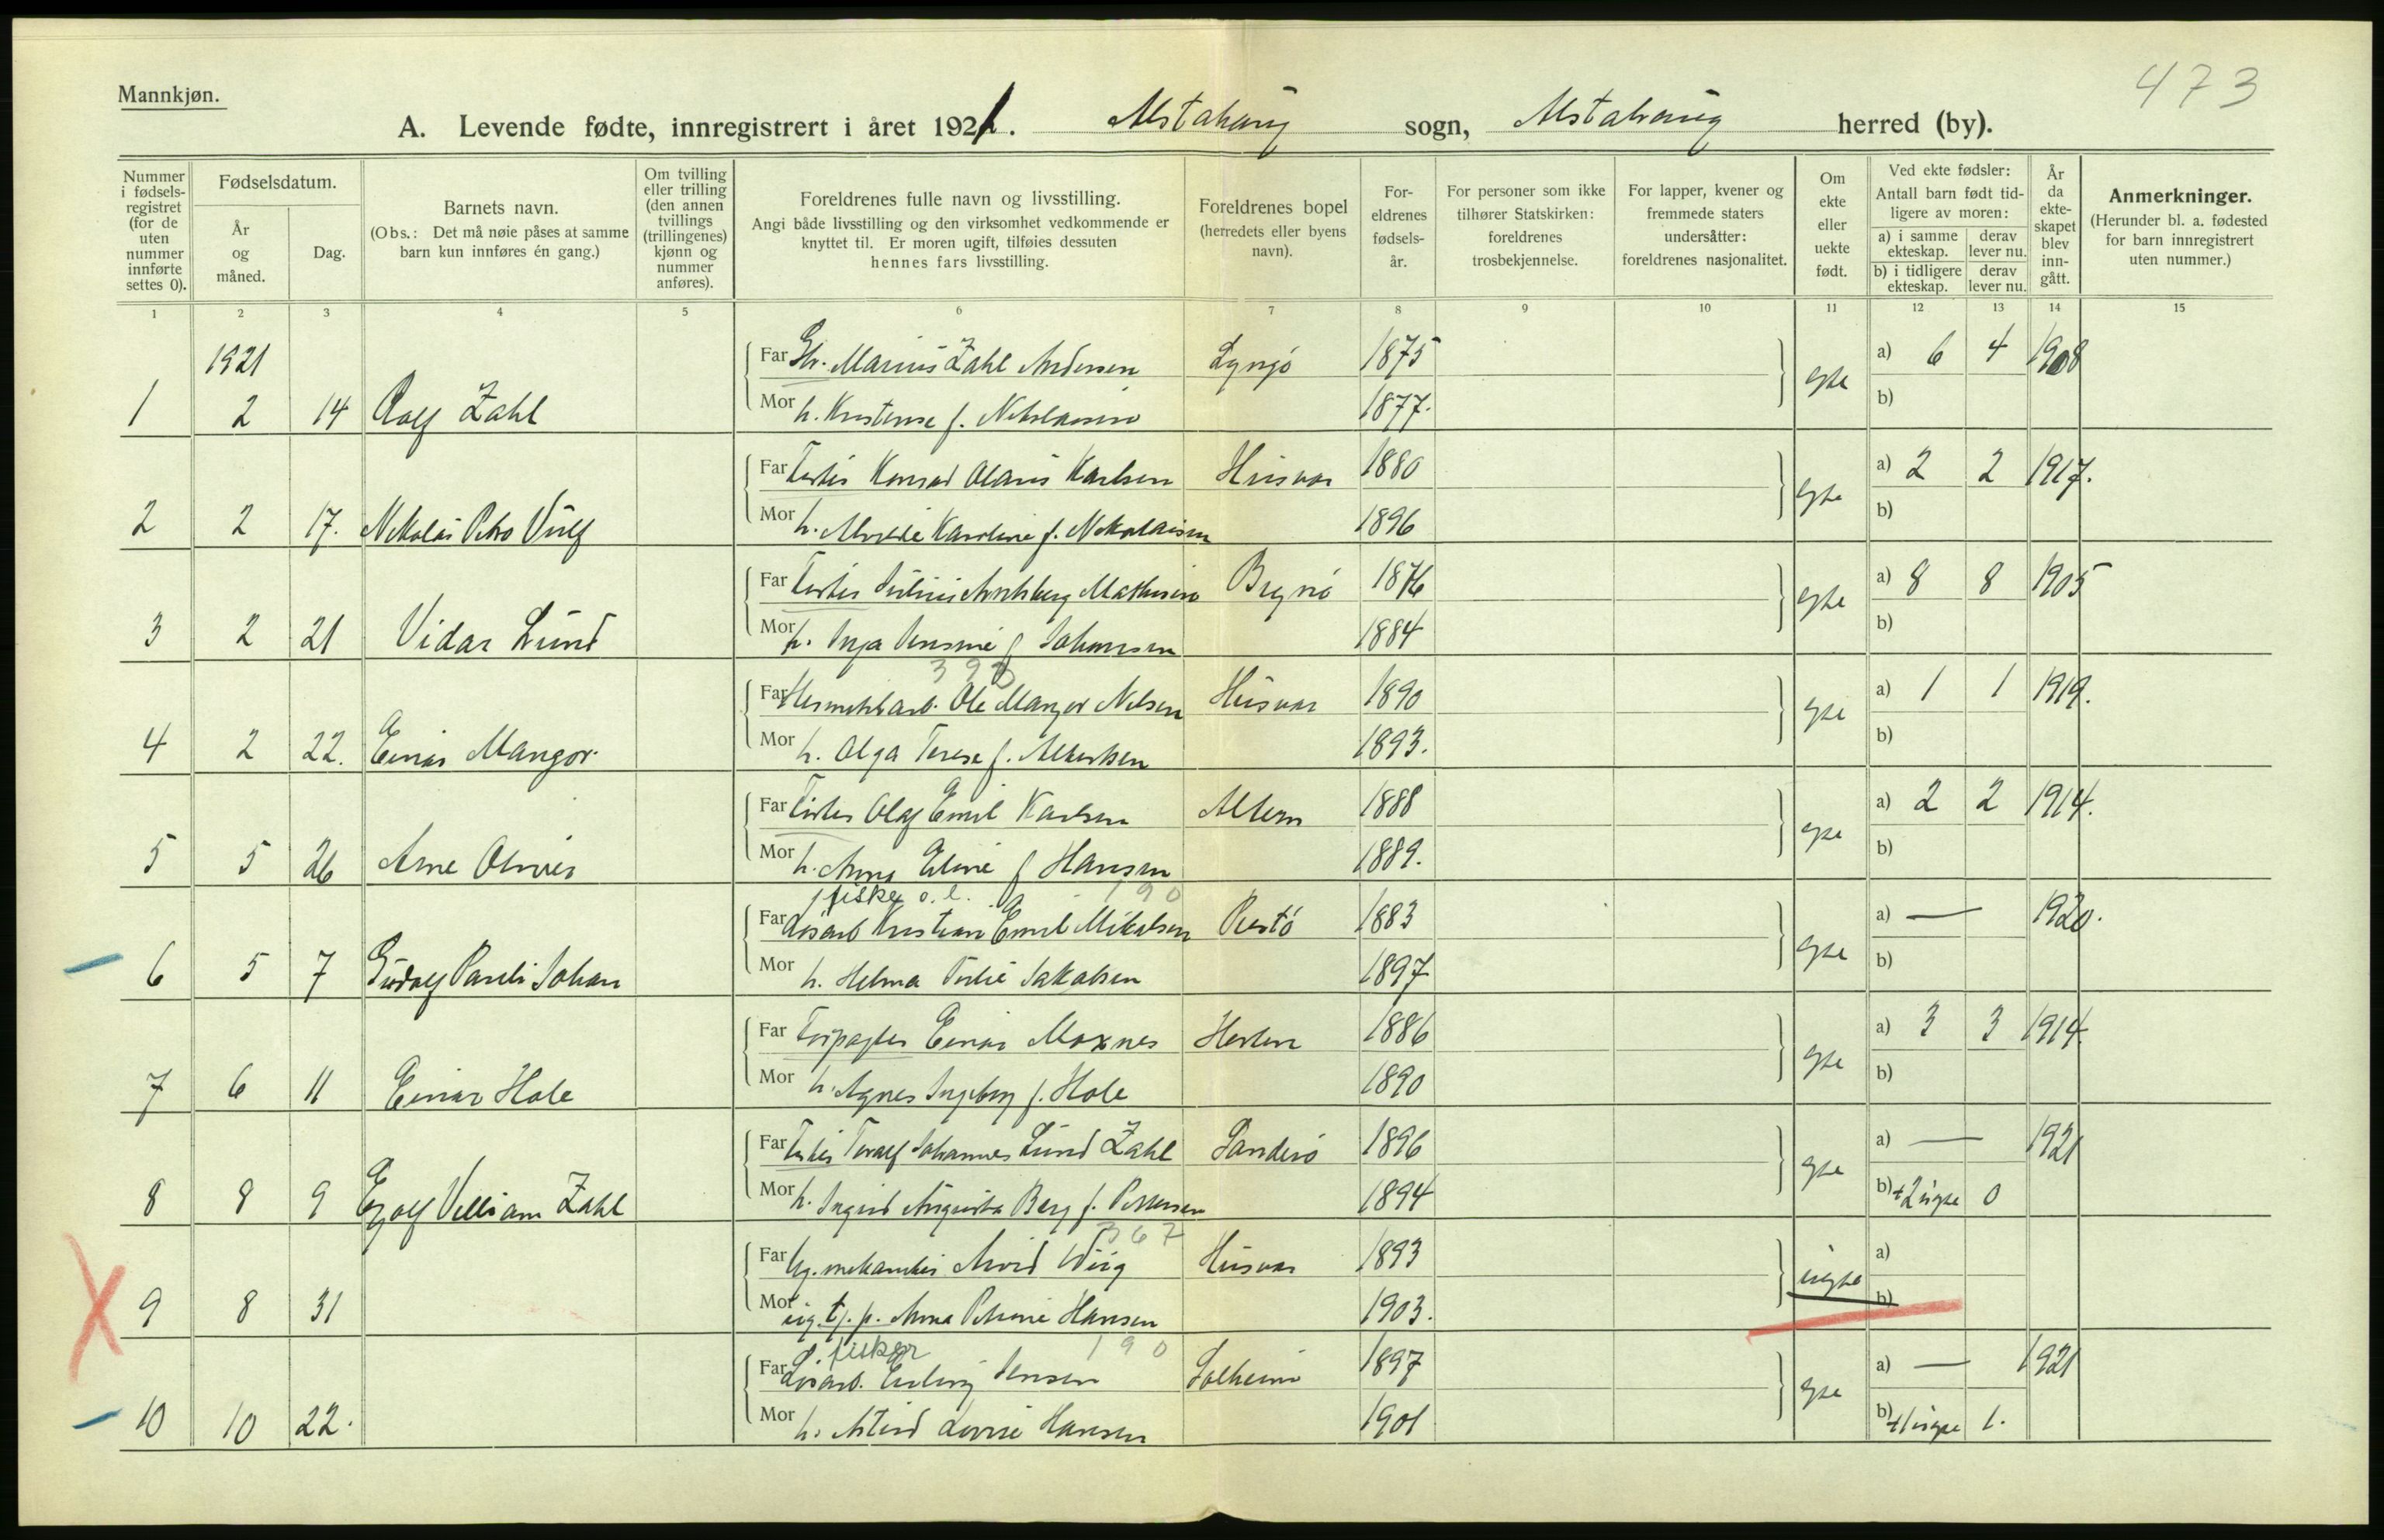 473
Mannkjøn.
A. Levende fødte, innregistrert i året 1921. Alstahaug sogn, Alstahaug herred (by).
Nummer i fødsels-registret (for de uten nummer innførte settes 0).
Fødselsdatum.
År og måned.
Dag.
Barnets navn.
(Obs.: Det må nøie påses at samme barn kun innføres én gang.)
Om tvilling eller trilling (den annen tvillings (trillingenes) kjønn og nummer anføres).
Foreldrenes fulle navn og livsstilling.
Angi både livsstilling og den virksomhet vedkommende er knyttet til. Er moren ugift, tilføies dessuten hennes fars livsstilling.
Foreldrenes bopel (herredets eller byens navn).
For-eldrenes fødsels-år.
For personer som ikke tilhører Statskirken: foreldrenes trosbekjennelse.
For lapper, kvener og fremmede staters undersåtter: foreldrenes nasjonalitet.
Om ekte eller uekte født.
Ved ekte fødsler:
Antall barn født tid-ligere av moren:
a) i samme ekteskap. derav lever nu.
b) i tidligere ekteskap. derav lever nu.
År da ekte-skapet blev inn-gått.
Anmerkninger.
(Herunder bl. a. fødested for barn innregistrert uten nummer.)
1 2 3 4 5 6 7 8 9 10 11 12 13 14 15
1921
Far Marius Zahl Andersen 1875 a) 6 4 1908
1 2 14 Rolf Zahl Mor h. f. 1877. egte b)
Far Konrad Olaus Karlsen Husvær 1880 a) 2 2 1917.
2 2 17. Nikolai Petro Mor h. Karoline f. Nikolaisen 1896 egte b)
Far Fisker Julius Mathisen 1876 a) 8 8 1905
3 2 21 Vidar Lund Mor h. Inga f. Johansen 1884 egte b)
390
Far Hermetikarb. Ole Mangor Nilsen Husvær 1890 a) 1 1 1919.
4 2 22. Einar Mangor Mor h. Olga Terese f. Albertsen 1893. egte b)
Far Fisker Olaf Emil Karlsen Altern 1888 a) 2 2 1914.
5 5 26 Arne Mor h. Anna Eline f. Hansen 1889. egte b)
fisker o. l. 190
Far Løsarb Kristian Emil Mikalsen 1883 a) — 1920.
6 5 7 Pauli Johan Mor h. Helma Julie Jakobsen 1897 egte b)
Far Einar Moxnes 1886 a) 3 3 1914.
7 6 11 Einar Hole Mor h. Agnes Ingeborg f. Hole 1890 egte b)
Far Fisker Toralf Johannes Lund Zahl Sanderø 1896 a) — 1921
8 8 9 Egolf Villiam Zahl Mor h. Ingrid Augusta Berg f. Pettersen 1894 egte b) + 2 uegte 0
367
Far Ug. mekaniker Arvid Wiig Husvær 1893 a)
9 8 31 Mor ug. tj. p. Anna Petrine Hansen 1903. uegte b)
fisker 190
Far Løsarb. Erling Jensen Solheim 1897 a) — 1921
10 10 22. Mor h. Astrid Lovise Hansen 1901 egte b) +1 uegte 1.